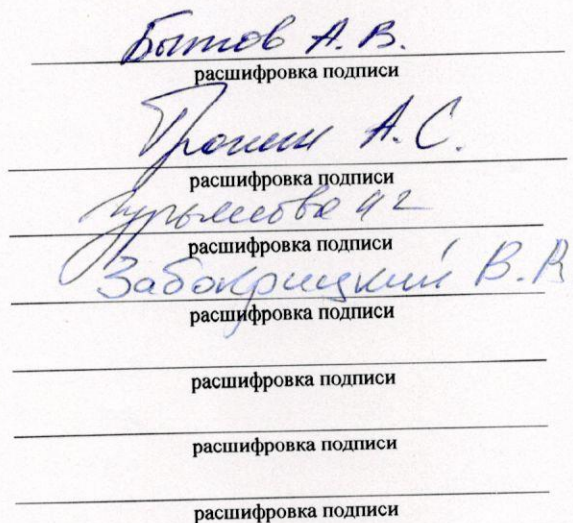 Бытов А. В.
расшифровка подписи
Пронин А. С.
расшифровка подписи
расшифровка подписи
Забокрицкий В. В
расшифровка подписи
расшифровка подписи
расшифровка подписи
расшифровка подписи